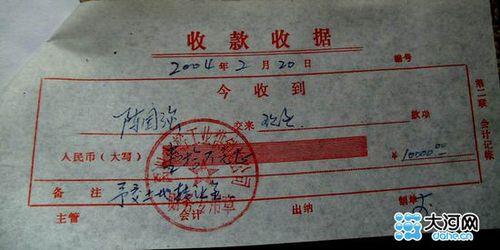 收款收据
2004年2月20日 编号
今收到
陈国强 交来 现金 款项
人民币（大写） 壹拾万元正 ￥100000.00
备注 予交土地转让金
主管 会计 出纳 制单
第二联 会计记帐
财务专用章
大河网
dahe.cn